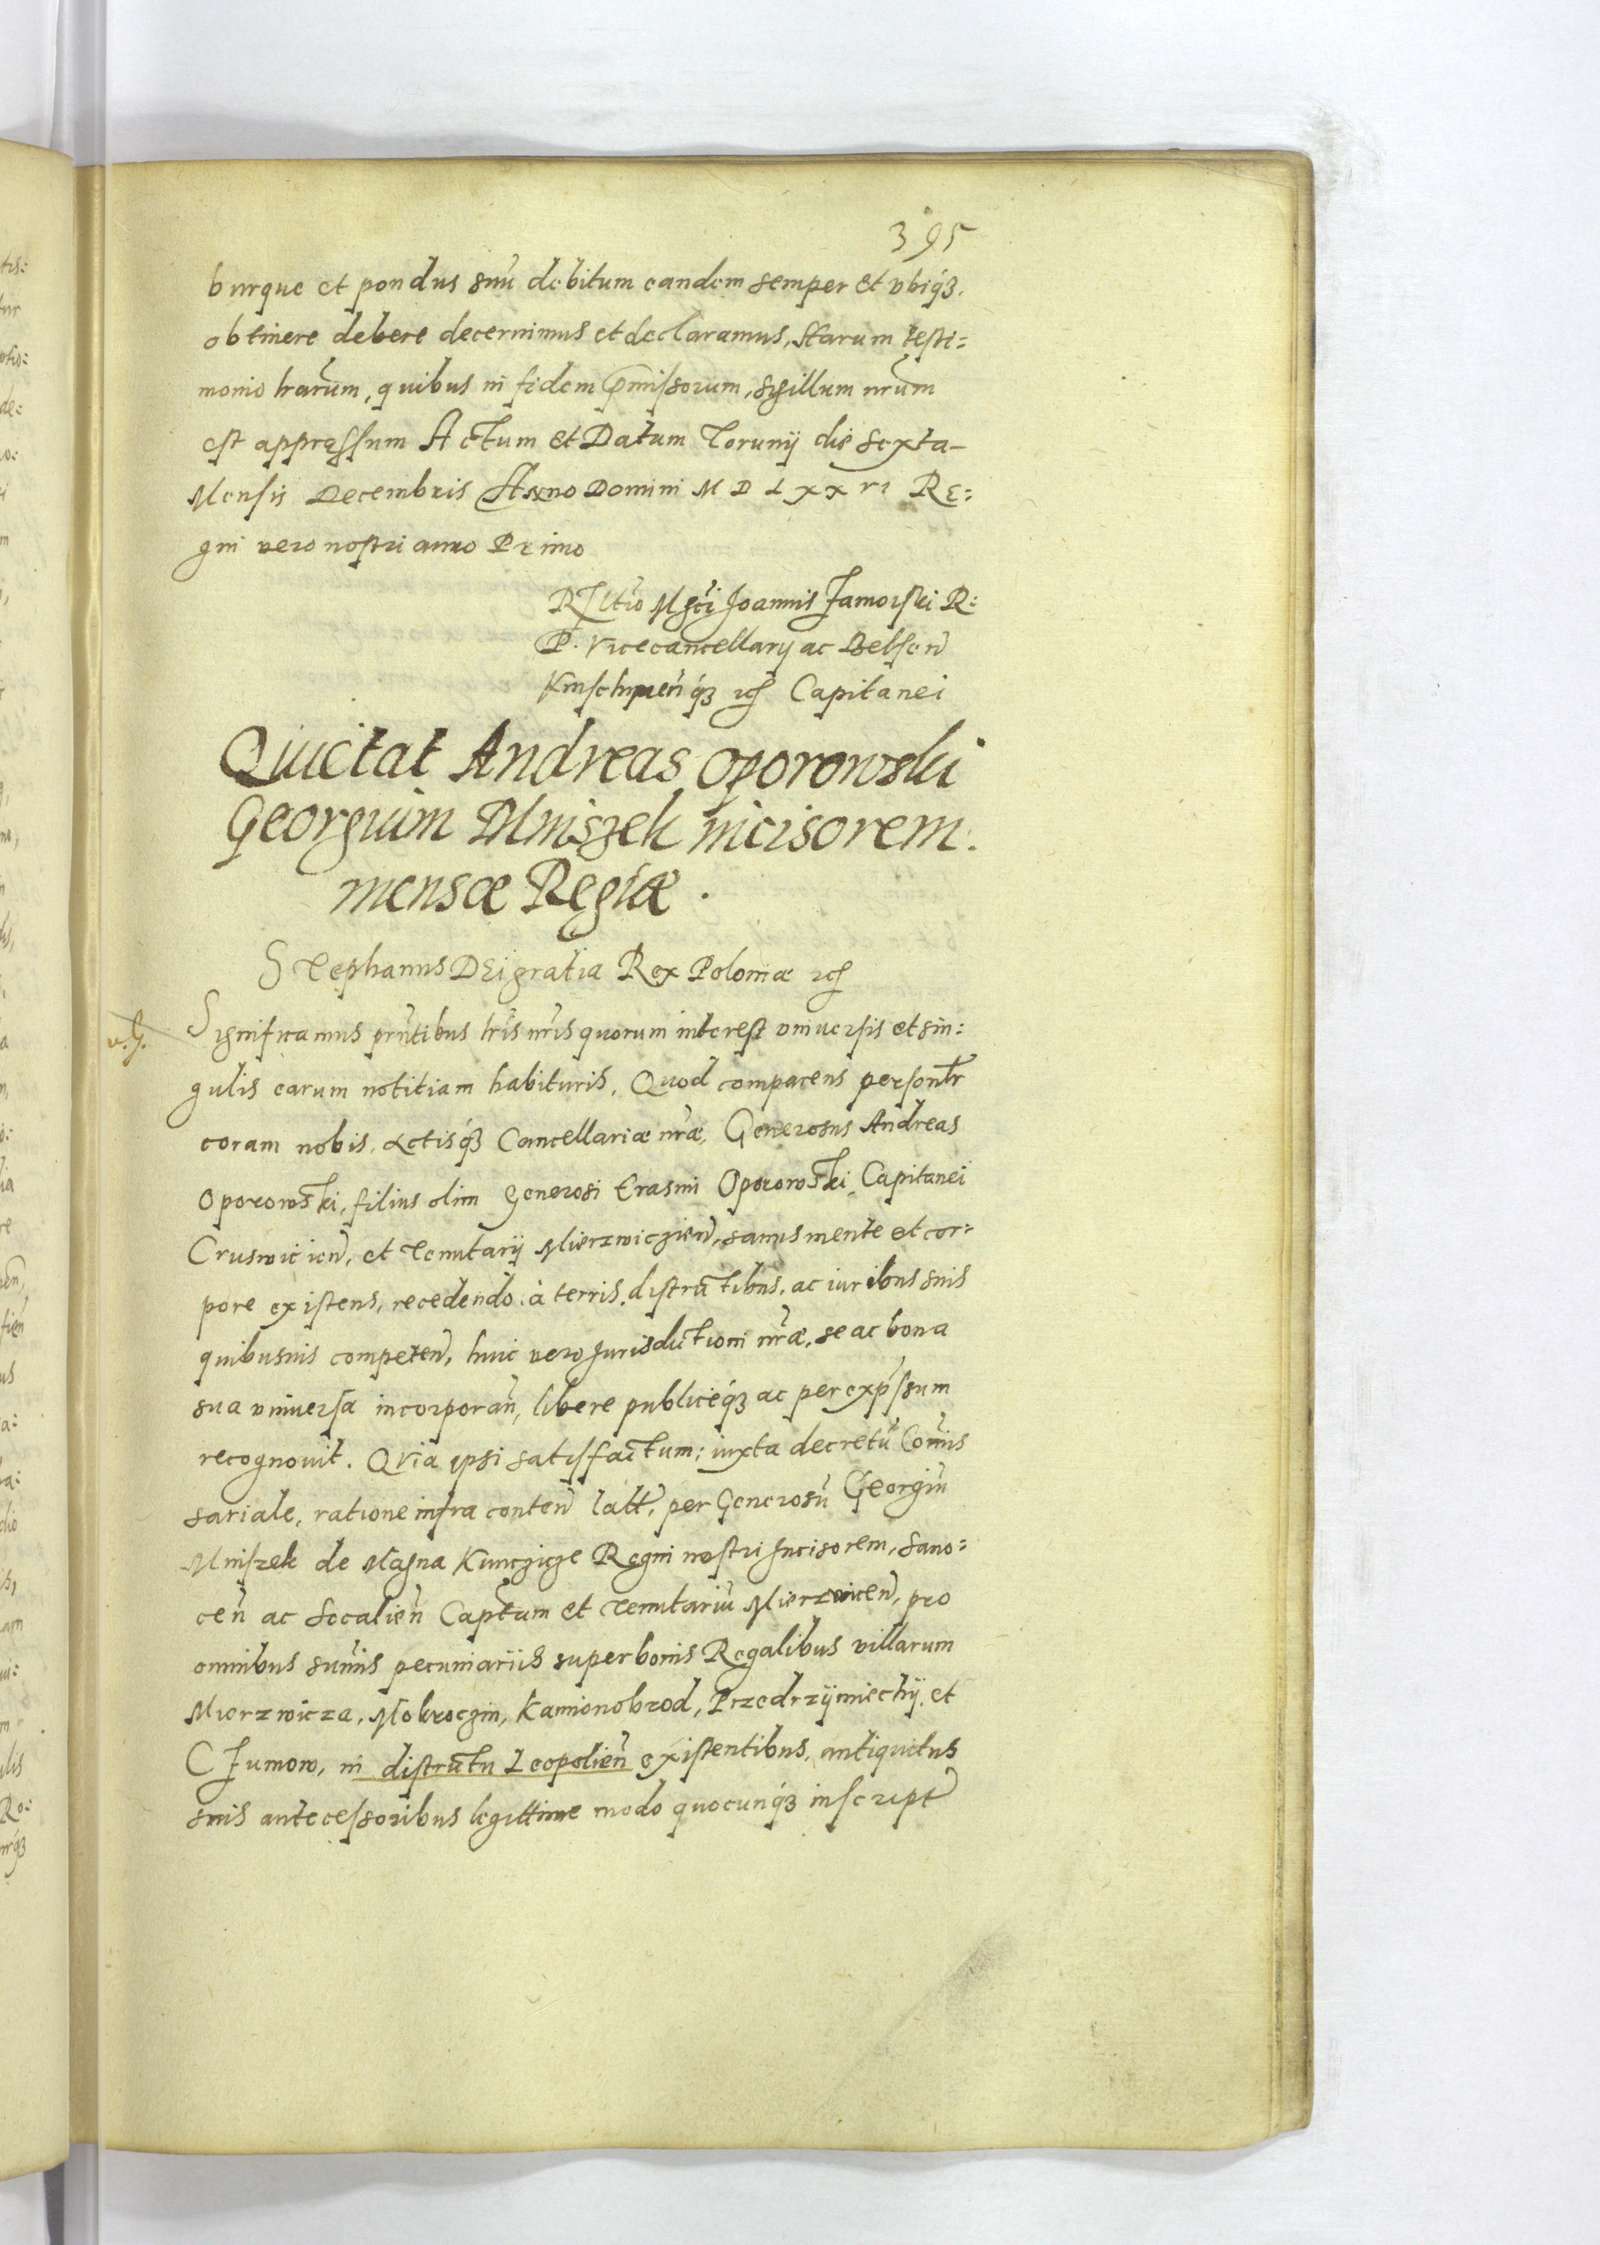 395
burque et pondus suũ debitum eandem semper et vbiq́ꝫ.
obtinere debere decernimus et declaramus, Harum testi:
monio l̃rarum, quibus in fidem p̃missorum, sigillum nr̃um
est appręssum Actum et Datum Torunij die sexta
Mensis Decembris Anno Domini M D L X X VI Re:
gni vero nostri anno Primo
Rel̃tio Mg̃ci Joannis Zamoiski R:
P. Vicecancellarij ac Belsen̄
Knischynen̄q́ꝫ ꝛcꝭ Capitanei
Quietat Andreas Oporowski
Georgium Mniszek incisorem
mensæ Regiæ.
Stephanus DEi gratia Rex Poloniæ ꝛcꝭ
v. G.
Significamus pñtibus l̃ris nr̃is quorum interest vniuersis et sin:
gulis earum notitiam habituris, Quod comparens personl̃r
coram nobis, Actisq́ꝫ Cancellariæ nr̃æ, Generosus Andreas
Oporowski, filius olim Generosi Erasmi Oporowski, Capitanei
Cruswicien̄, et Tenutarij Mierzwiczien̄, sanus mente et cor:
pore existens, recedendo à terris, districtibus, ac iuribus suis
quibusuis competen̄, huic vero Jurisdictioni nr̃æ, se ac bona
sua vniuersa incorporan̄, libere publiceq́ꝫ ac per exp̃ssum
recognouit. Quia ipsi satisfactum: iuxta decretũ Com̃is
sariale, ratione infra conten̄ latt̃, per Generosũ Georgiũ
Mniszek de Magna Kunczicze Regni nostri Incisorem, Sano:
cen̄ ac Socalien̄ Capt̃eum et Tenutariũ Mierzwicen̄, pro
omnibus sum̃is pecuniariis super bonis Regalibus villarum
Mierzwicza, Mokroczin, Kamionobrod, Przedrzijmiechij, et
Czumow, in districtu Leopolien̄ existentibus, antiquitus
suis antecessoribus legittime modo quocunq́ꝫ inscript̃